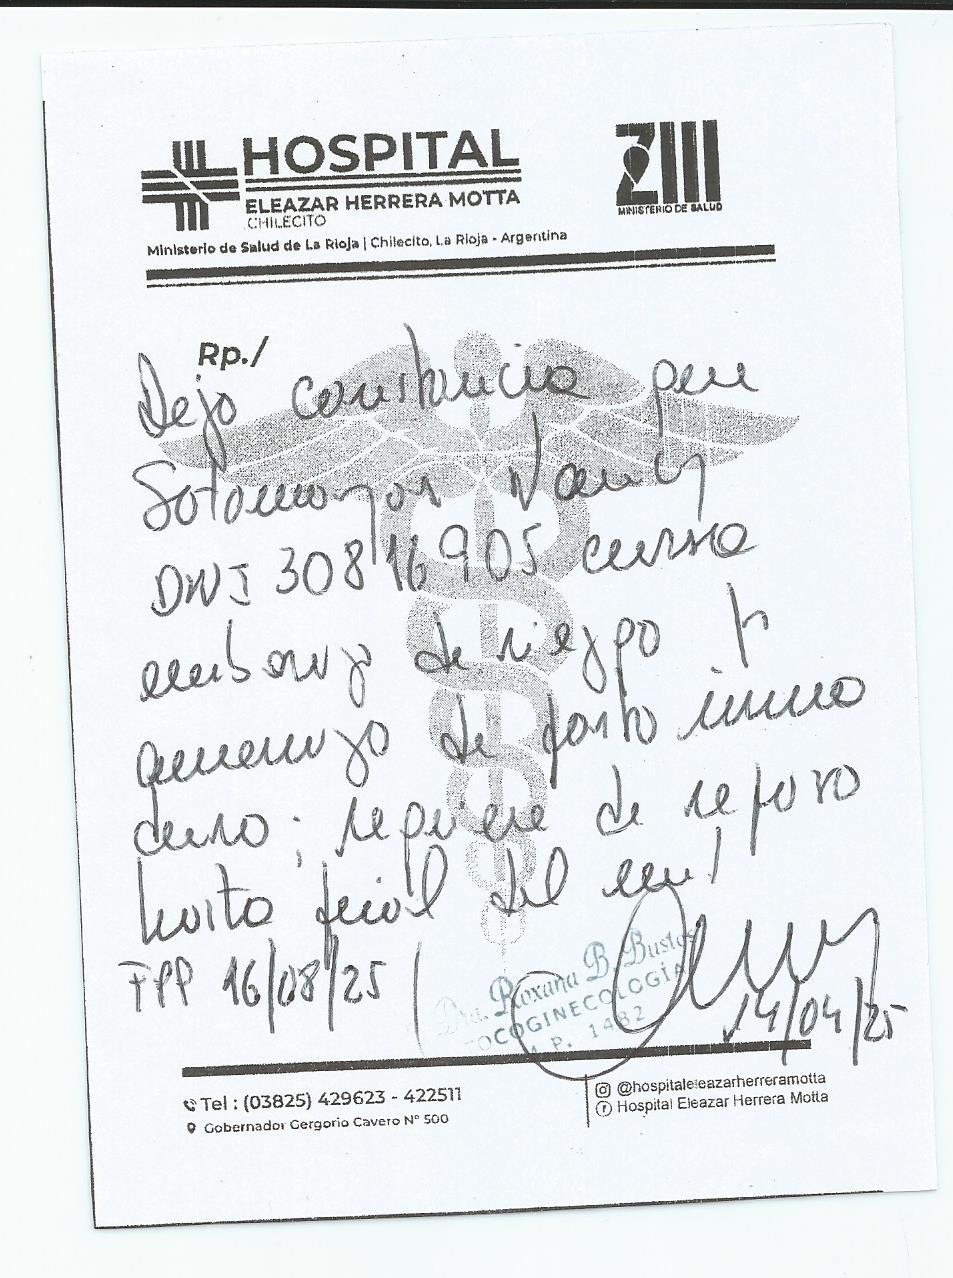 HOSPITAL
ELEAZAR HERRERA MOTTA
CHILECITO
Ministerio de Salud de La Rioja | Chilecito, La Rioja - Argentina
ZIII
MINISTERIO DE SALUD
Rp./
Dejo constancia que
Sotomayor Nancy
DNI 30816905 cursa
embarazo de riesgo p/
amenaza de parto inma
duro; requiere de reposo
hasta final del emb
FPP 16/08/25
Dra. Roxana B. Bustos
TOCOGINECOLOGÍA
M.P. 1482
14/04/25
Tel : (03825) 429623 - 422511
Gobernador Gergorio Cavero N° 500
@hospitaleleazarherreramotta
Hospital Eleazar Herrera Motta